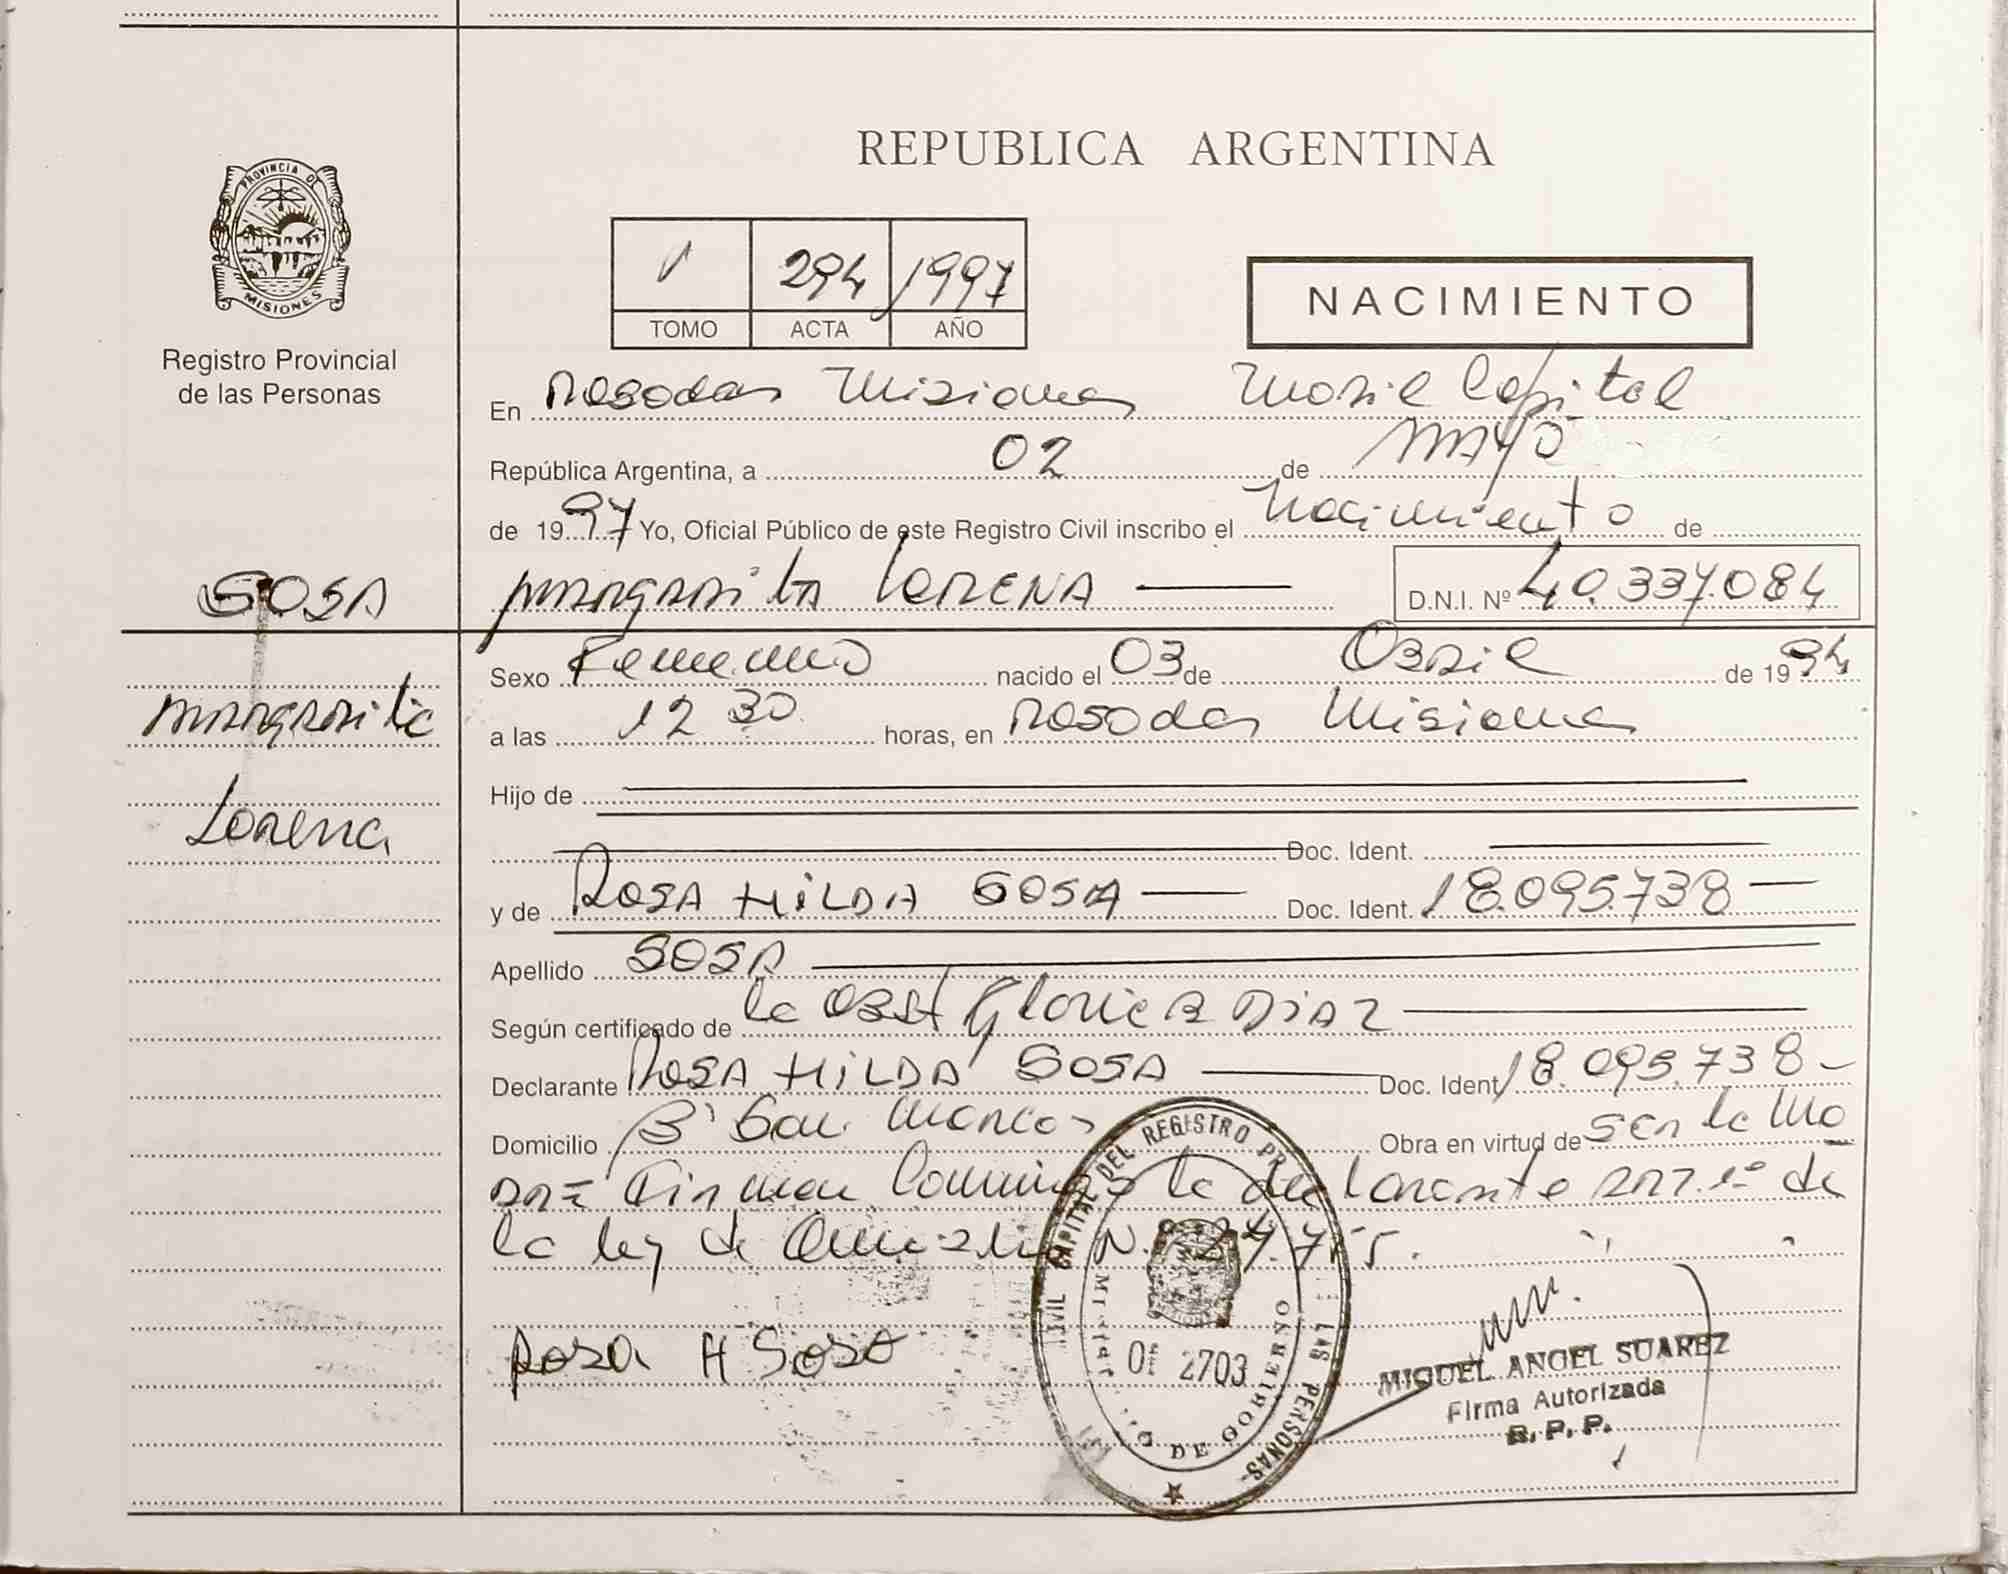 REPUBLICA ARGENTINA
PROVINCIA DE
MISIONES
Registro Provincial
de las Personas
294 1997
TOMO ACTA AÑO
NACIMIENTO
En Posadas Misiones Capital
República Argentina, a 02 de MAYO
de 1997 Yo, Oficial Público de este Registro Civil inscribo el Nacimiento de
SOSA
MARGARITA LORENA D.N.I. Nº 40.337.084
Sexo Femenino nacido el 03 de Abril de 1994
Margarita
a las 12 30 horas, en Posadas Misiones
Hijo de
Lorena
Doc. Ident.
y de ROSA HILDA SOSA Doc. Ident. 18.095.738
Apellido SOSA
Según certificado de la Obst Gloria B DIAZ
Declarante ROSA HILDA SOSA Doc. Ident. 18.095.738
Domicilio Bº San Marcos Obra en virtud de
la declarante Art. 1º de
la ley de Amnistia N.
Rosa H Sosa
CIVIL CAPITAL DEL REGISTRO LAS PERSONAS
DE GOBIERNO
2703
MIGUEL ANGEL SUAREZ
Firma Autorizada
R. P. P.